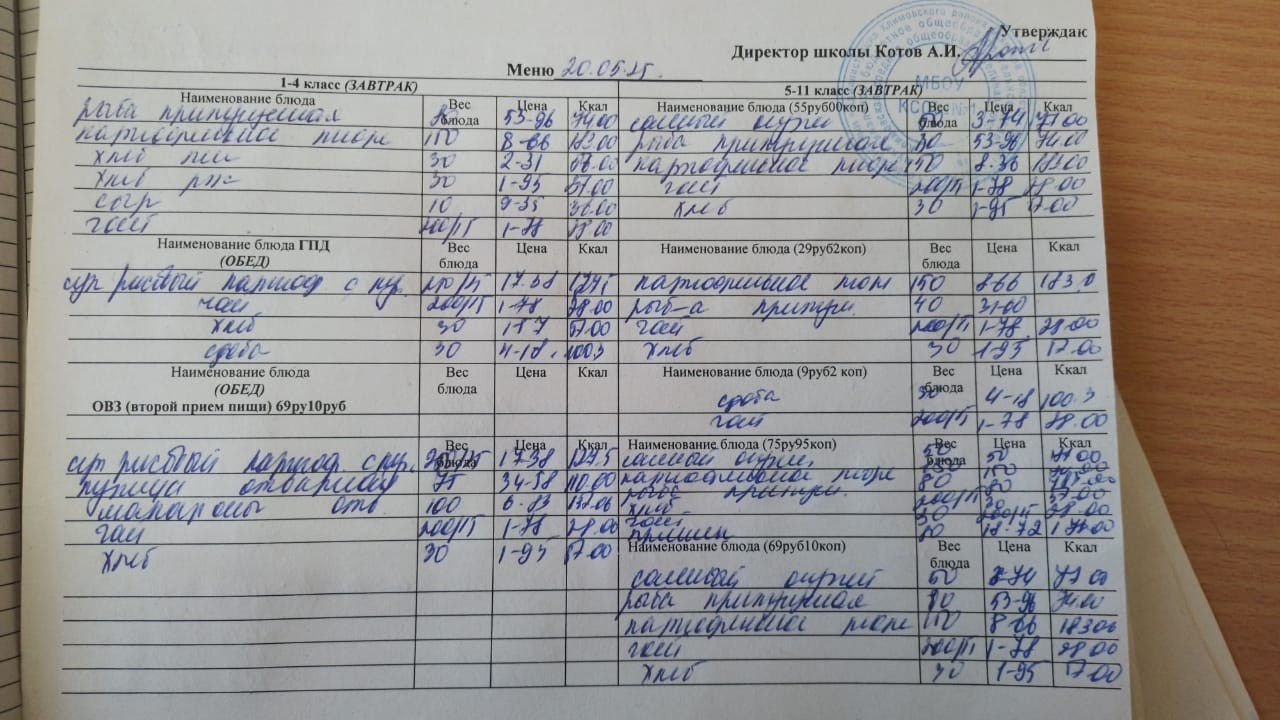 Утверждаю
Директор школы Котов А.И.
МБОУ
Меню 20.05.25.
1-4 класс (ЗАВТРАК)
Наименование блюда Вес блюда Цена Ккал
рыба припущенная 53-96 74.00
картофельное пюре 150 8-66
хлеб пш 30 2-31
хлеб рж 30 1-95 57.00
сыр 10 9-35 36.00
чай 200/15 1-78 28.00
Наименование блюда ГПД (ОБЕД) Вес блюда Цена Ккал
суп рисовый картоф с кур. 17.38 127.5
чай 200/15 1-78 28.00
хлеб 30 57.00
сдоба 30 4-18 100.3
Наименование блюда (ОБЕД) Вес блюда Цена Ккал
ОВЗ (второй прием пищи) 69ру10руб
суп рисовый картоф с кур. 17-38 127.5
курица отварная 75 34-58 110.00
макароны отв 100 6-83
чай 200/15 1-78 28.00
хлеб 30 1-95 57.00
5-11 класс (ЗАВТРАК)
Наименование блюда (55руб00коп) Вес блюда Цена Ккал
соленый огурец 3-74
рыба припущенная 80 53-96 74.00
картофельное пюре 150 8.36
чай 200/15 1-78 28.00
хлеб 30 1-95 57.00
Наименование блюда (29руб2коп) Вес блюда Цена Ккал
картофельное пюре 150 8-66 183.0
рыб-а припущ. 40 31-00
чай 200/15 1-78 28.00
хлеб 30 1-95 57.00
Наименование блюда (9руб2 коп) Вес блюда Цена Ккал
сдоба 30 4-18 100.3
чай 200/15 1-78 28.00
Наименование блюда (75ру95коп) Вес блюда Цена Ккал
соленый огурец 50
картофельное пюре 150
рыба припущ. 80
хлеб 30
чай 200/15 28.00
18-72
Наименование блюда (69руб10коп) Вес блюда Цена Ккал
соленый огурец 50
рыба припущенная 80 53-96 74.00
картофельное пюре 150 8-66 183.06
чай 200/15 1-78 28.00
хлеб 30 1-95 57.00